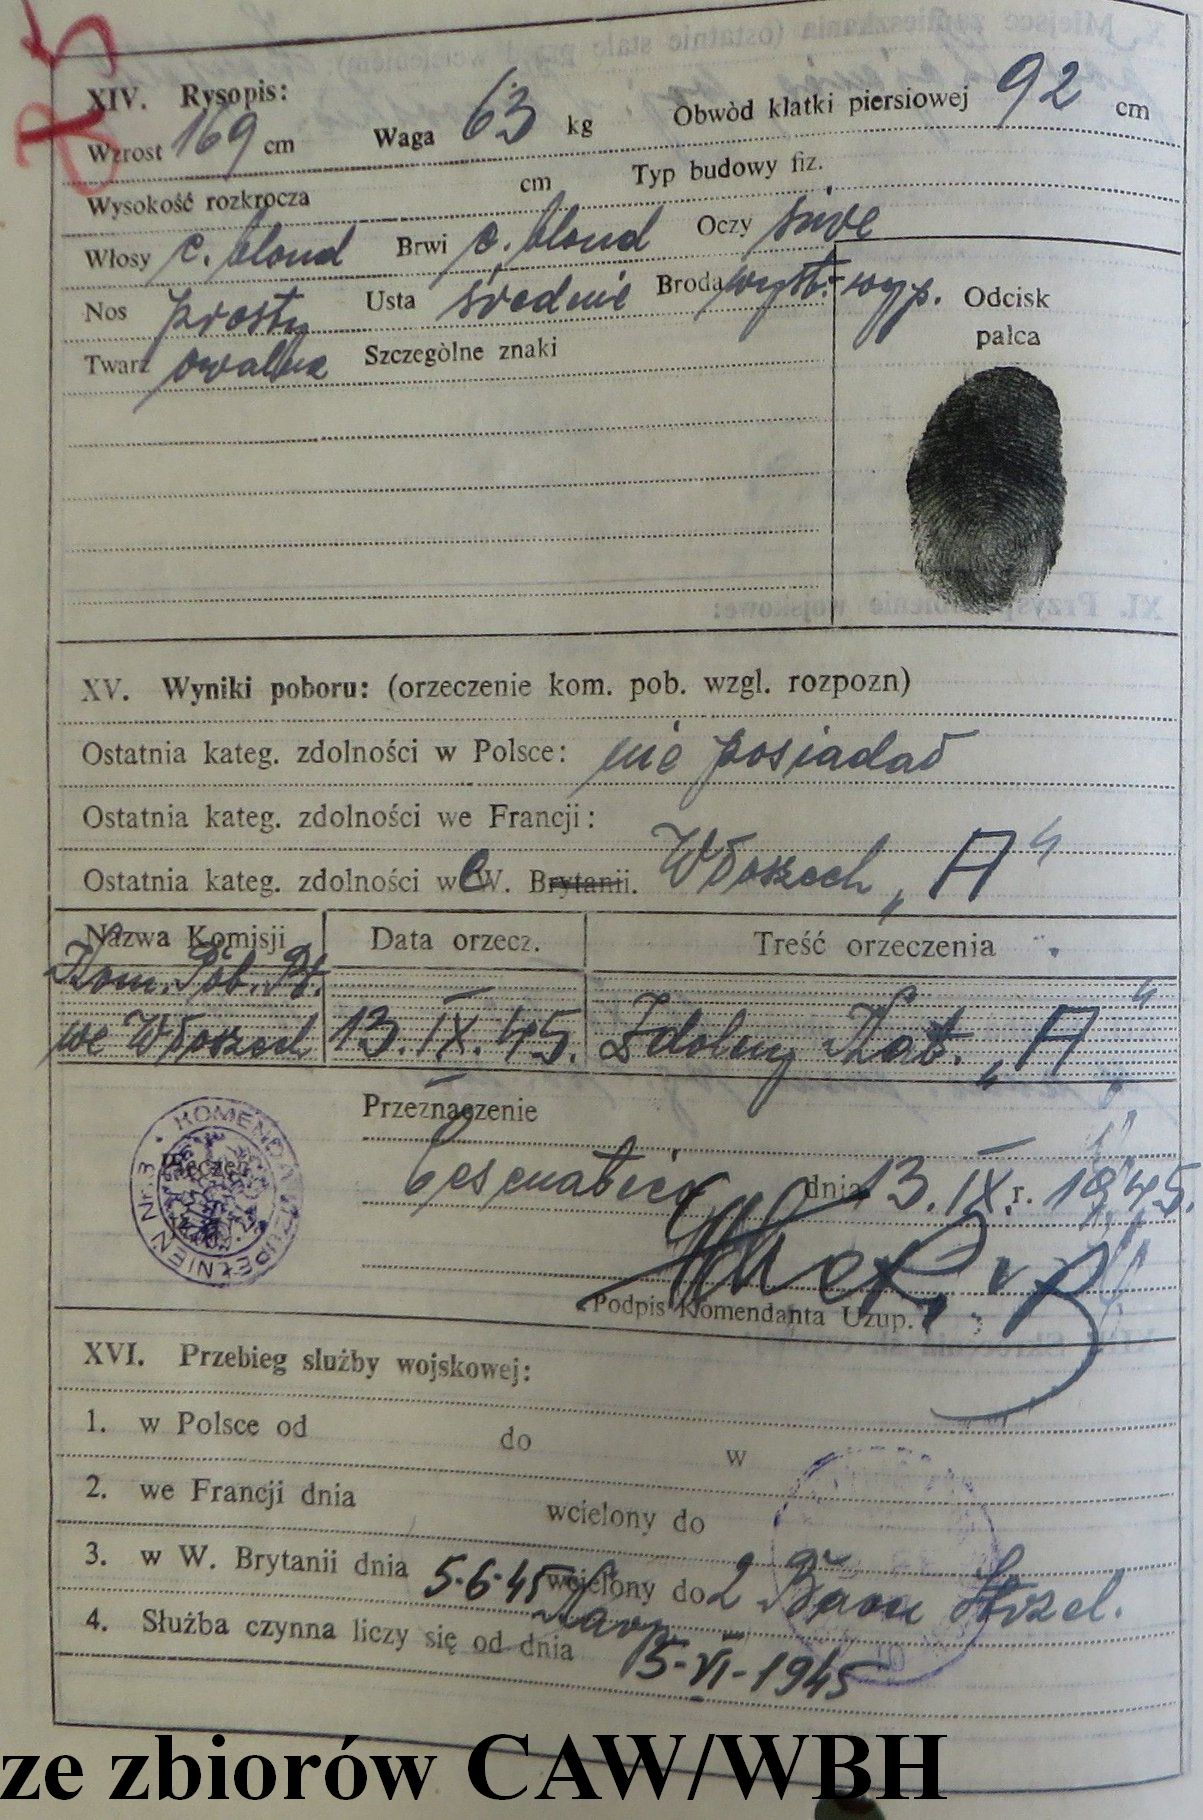 R5
XIV. Rysopis:
Wzrost 169 cm Waga 63 kg Obwòd klatki piersiowej 92 cm
Wysokość rozkrocza cm Typ budowy fiz.
Włosy c. blond Brwi c. blond Oczy siwe
Nos prosty Usta średnie Broda wyst.-wyp.
Twarz owalna Szczegòlne znaki
Odcisk
palca
XV. Wyniki poboru: (orzeczenie kom. pob. wzgl. rozpozn)
Ostatnia kateg. zdolności w Polsce: nie posiadał
Ostatnia kateg. zdolności we Francji:
Ostatnia kateg. zdolności we W. Brytanii. Włoszech „A"
Nazwa Komisji Data orzecz. Treść orzeczenia
Kom. Pob. Nr.
we Włoszech 13.IX.45. Zdolny Kat. „A"
Przeznaczenie
KOMENDA UZUPEŁNIEŃ Nr. 3
Pieczęć
dnia 13.IX.r. 1945.
Podpis Komendanta Uzup.
XVI. Przebieg służby wojskowej:
1. w Polsce od do w
2. we Francji dnia wcielony do
3. w W. Brytanii dnia 5-6-45 wcielony do 2 Baon Strzel.
4. Służba czynna liczy się od dnia 5-VI-1945
ze zbiorów CAW/WBH